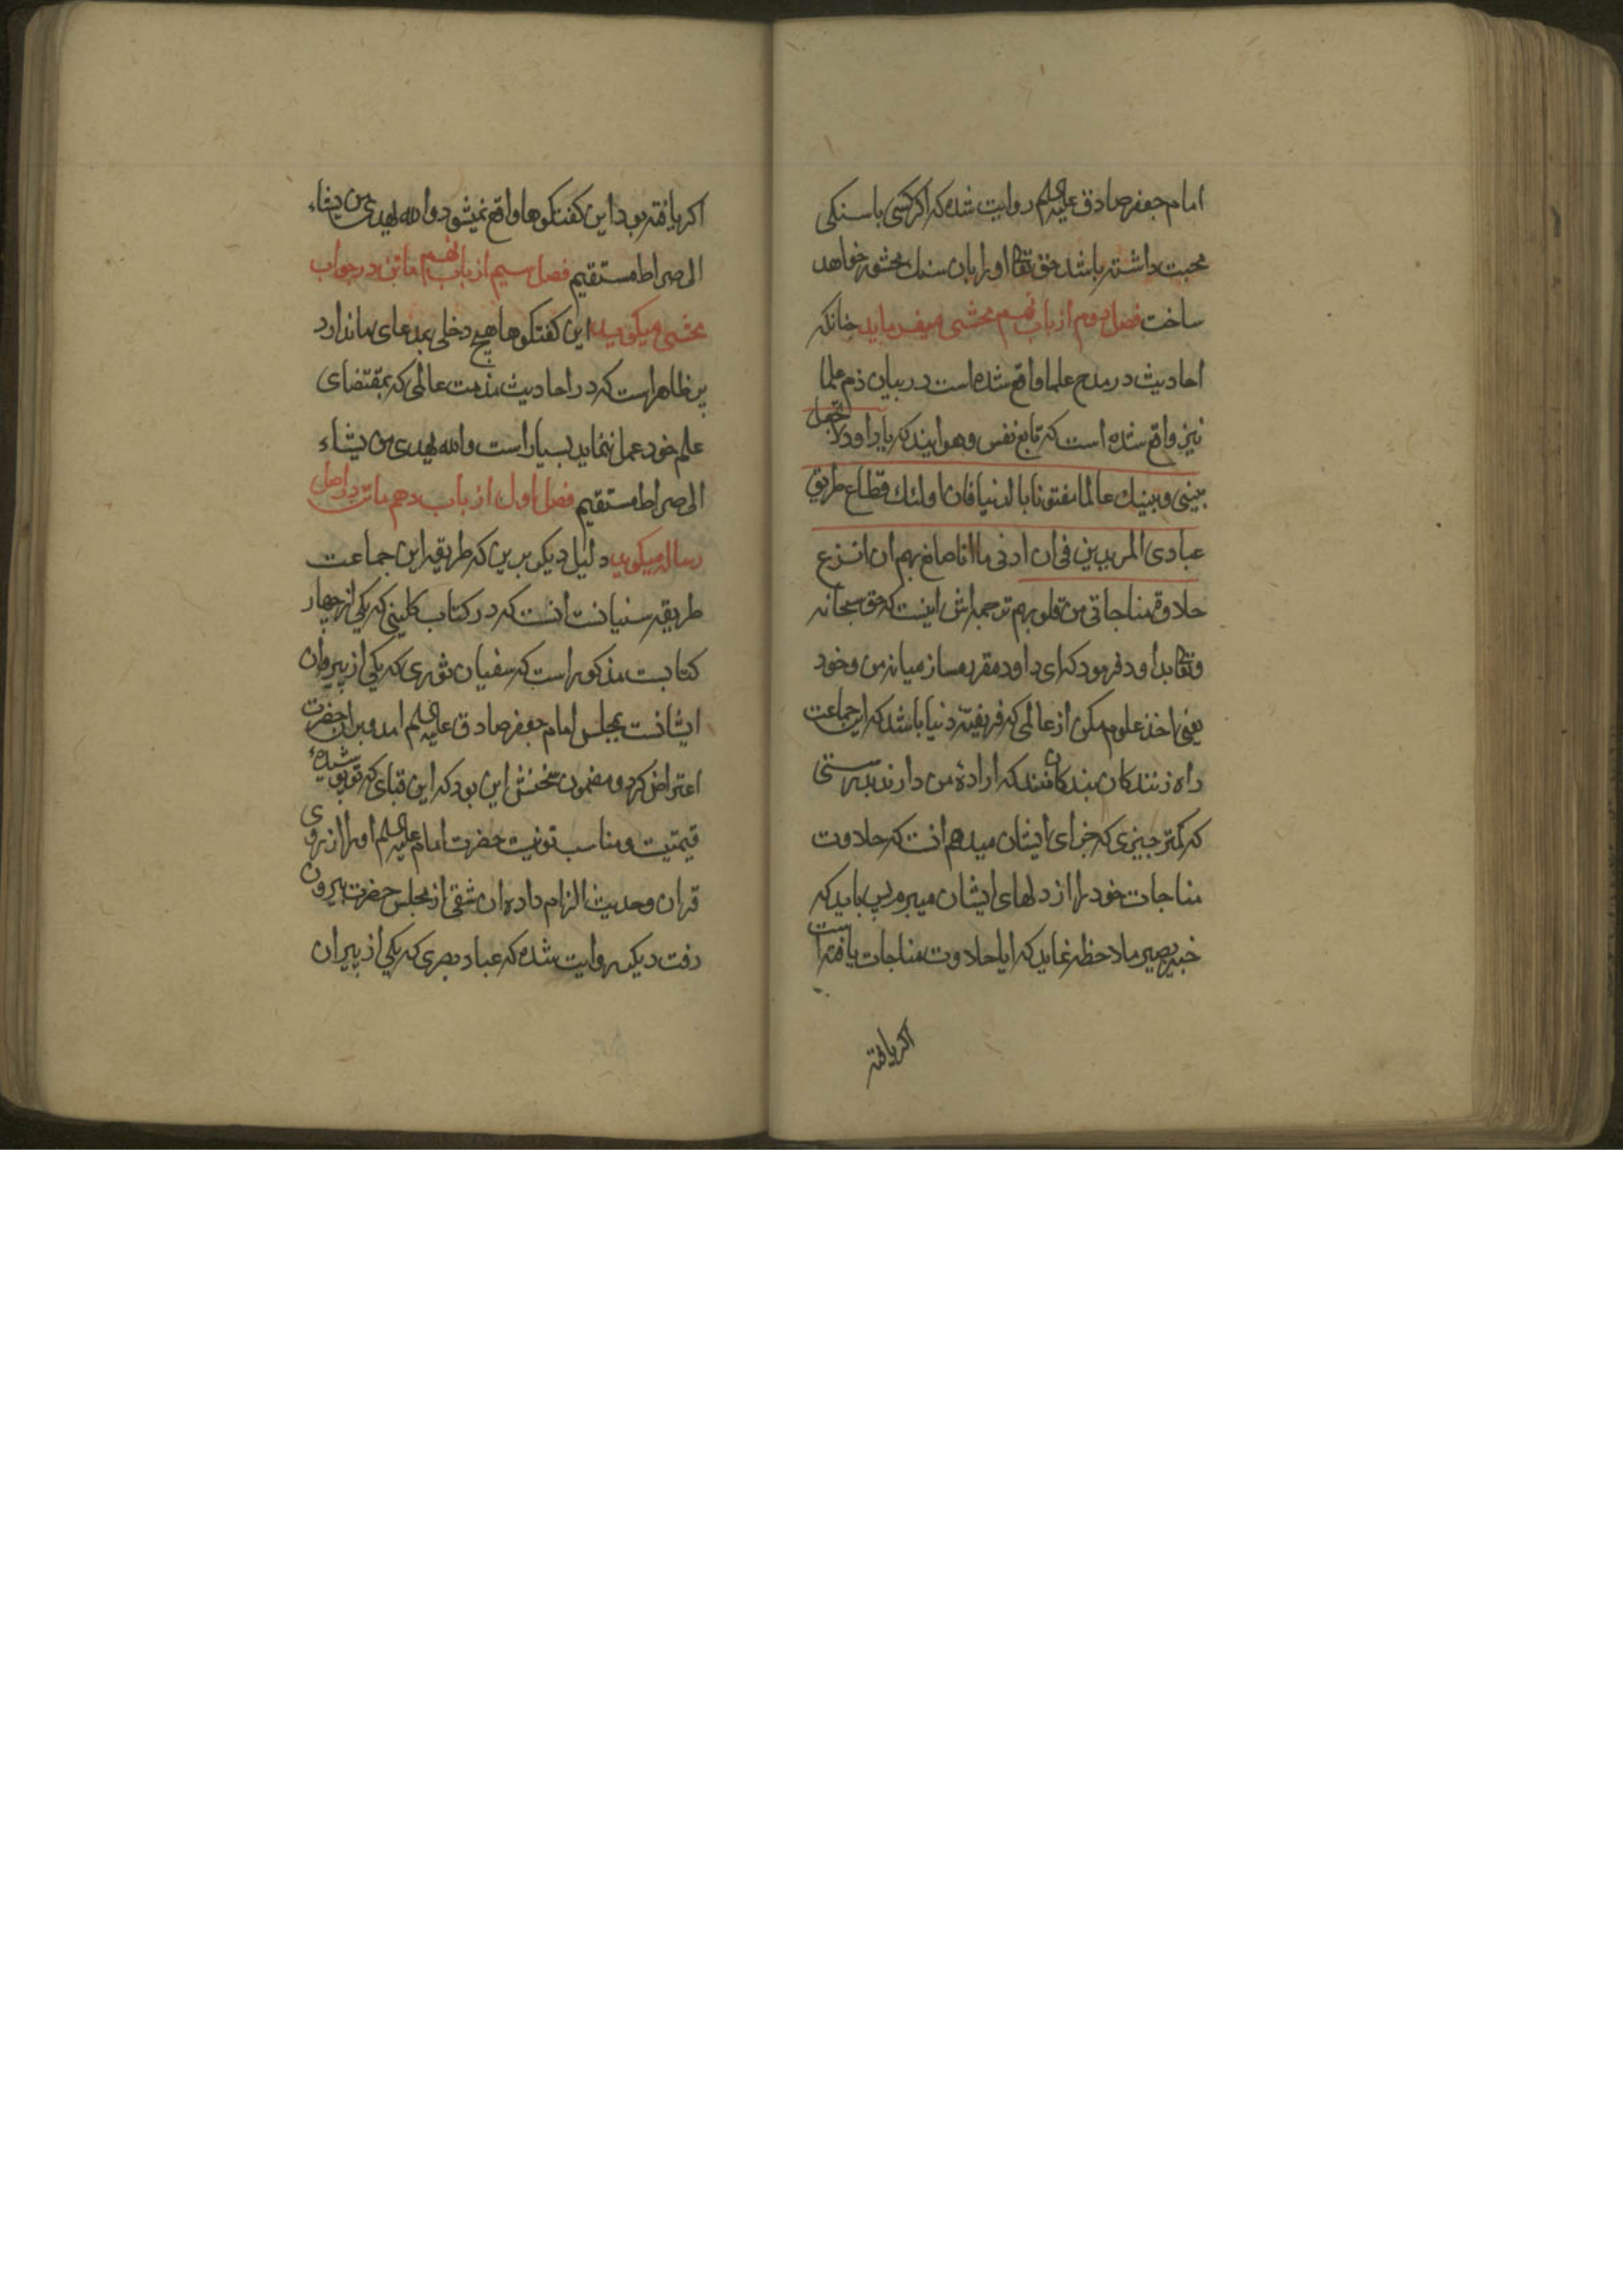 امام جعفر صادق علیه السلم روایت شده که اکر کسی با سنکی
محبت داشته باشد حق تعالی او را بان سنک محشور خواهد
ساخت فصل دوم از باب نهم محشی میفرماید چنانکه
احادیث در مدح علما واقع شده است در بیان ذم علما
نیز واقع شده است که تابع نفس و هوایند که یا داود لا تجعل
بینی و بینک عالما مفتونا بالدنیا فان اولئک قطاع طریق
عبادی المریدین فی ان ادنی ما انا صانع بهم ان انزع
حلاوة مناجاتی من قلوبهم ترجمه اش اینست که حق سبحانه
وتعالی بداود فرمود که ای داود مقرر مساز میانه من و خود
یعنی اخذ علوم مکن از عالمی که فریفته دنیا باشد که این جماعت
راه زنندکان بندکان منند که ارادهٔ من دارند بدرستی
که کمتر چیزی که جزای ایشان میدهم انست که حلاوت
مناجات خود را از دلهای ایشان میبرم پس باید که
خبیر بصیر ملاحظه نماید که ایا حلاوت مناجات یافته است
اکر یافته
اکر یافته بود این کفتکوها واقع نمیشود والله یهدی من یشاء
الی صراط مستقیم فصل سیم از باب نهم ماتن در جواب
محشی میکوید این کفتکوها هیچ دخلی بمدعای ما ندارد
پر ظاهر است که در احادیث مذمت عالمی که بمقتضای
علم خود عمل ننماید بسیار است والله یهدی من یشاء
الی صراط مستقیم فصل اول از باب دهم ماتن در اصل
رساله میکوید دلیل دیکر برین که طریقه این جماعت
طریقه سنیانست انست که در کتاب کلینی که یکی از چهار
کتابست مذکور است که سفیان ثوری که یکی از پیروان
ایشانست بمجلس امام جعفر صادق علیه السلم امد و بران حضرت
اعتراض کرد و مضمون سخنش این بود که این قبای که تو پوشیدهٔ
قیمتیست و مناسب تو نیست حضرت امام علیه السلم او را از روی
قران و حدیث الزام داده ان شقی از مجلس حضرت بیرون
رفت دیکر روایت شده که عباد بصری که یکی از پیران